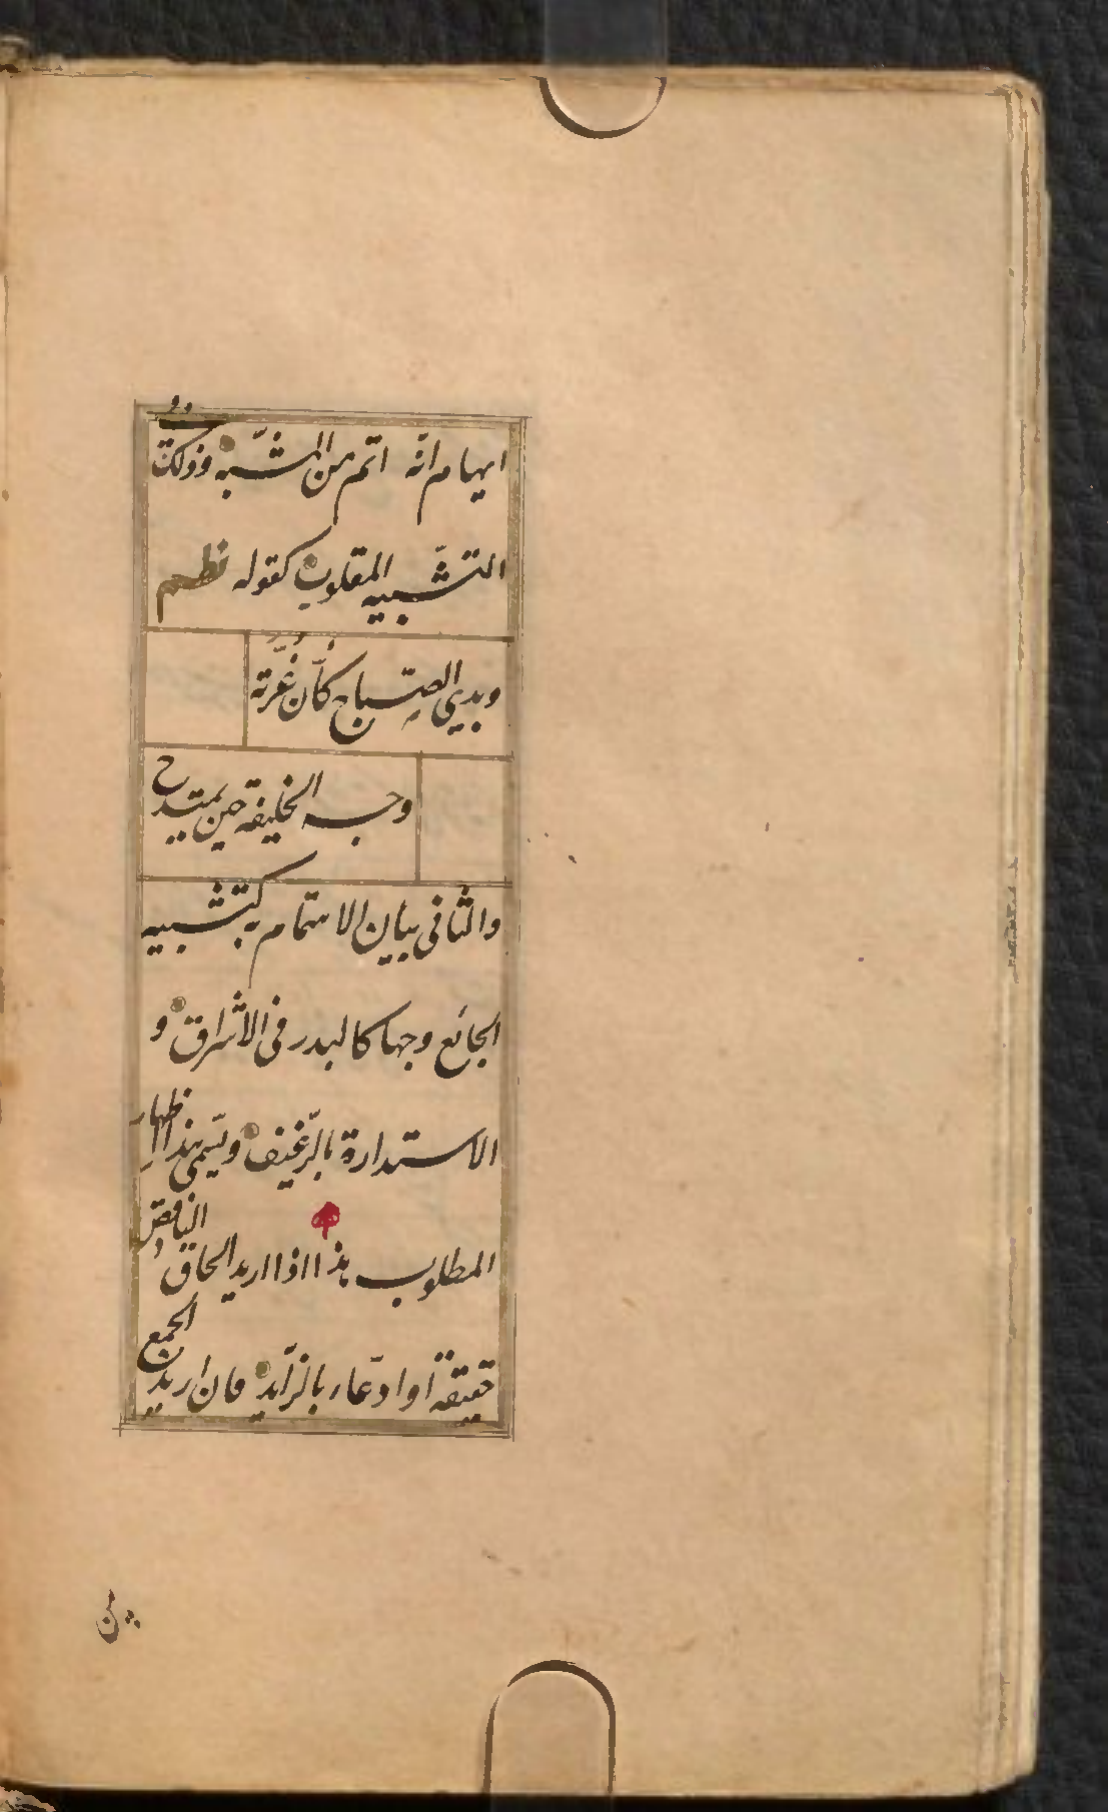 ايهام انّه اتم من المشبّه وذلك فى
التشّبيه المقلوب كقوله نظم
وبدي الصّباح كأنّ غُرّته
وجه الخليفة حين يمتدح
والثانى بيان الاهتمام به كتشبيه
الجائع وجها كالبدر فى الاشراق و
الاستدارة بالرّغيف ويسّمى هذا اظهار
المطلوب هذا اذا اريد الحاق الناقص
حقيقة أو ادّعاء بالزّايد فان اريد الجمع
بين